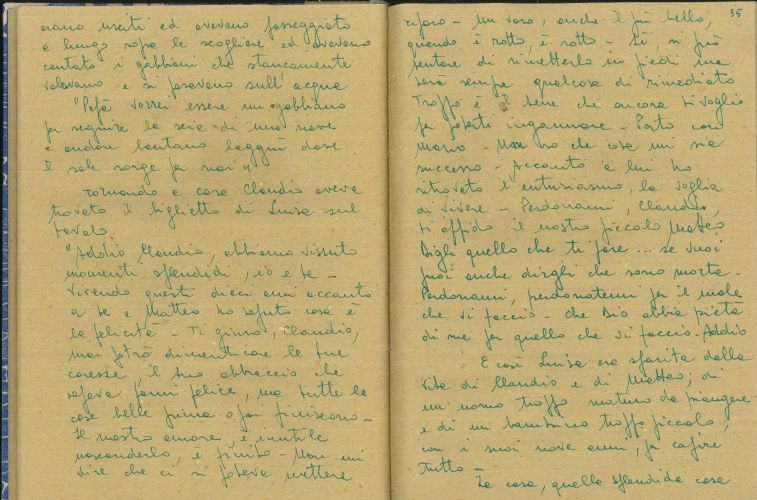 erano usciti ed avevano passeggiato
a lungo sopra le scogliere ed avevano
contato i gabbiani che stancamente
volavano e si posavano sull'acqua
"Papà vorrei essere un gabbiano
per seguire la scia di una nave
e andare lontano laggiù dove
il sole sorge per noi"
Tornando a casa Claudio aveva
trovato il biglietto di Luisa sul
tavolo
"Addio, Claudio, abbiamo vissuto
momenti splendidi, io e te -
Vivendo questi dieci anni accanto
a te e Matteo ho saputo cosa è
la felicità - Ti giuro, Claudio,
mai potrò dimenticare le tue
carezze, il tuo abbraccio che
sapeva farmi felice, ma tutte le
cose belle prima o poi finiscono -
Il nostro amore, è inutile
nasconderlo, è finito - Non mi
dire che ci si poteva mettere
35
riparo - Un vaso, anche il più bello,
quando è rotto, è rotto - Sì, si può
tentare di rimetterlo in piedi ma
sarà sempre qualcosa di rimediato
Troppo è il bene che ancora ti voglio
per poterti ingannare - Parto con
Mario - Non so che cosa mi sia
successo - Accanto a lui ho
ritrovato l'entusiasmo, la voglia
di vivere - Perdonami, Claudio,
ti affido il nostro piccolo Matteo
Digli quello che ti pare ... se vuoi
puoi anche dirgli che sono morta -
Perdonami, perdonatemi per il male
che vi faccio - Che Dio abbia pietà
di me per quello che vi faccio - Addio
E così Luisa era sparita dalla
vita di Claudio e di Matteo; di
un uomo troppo maturo da piangere
e di un bambino troppo piccolo,
con i suoi nove anni, per capire
tutto -
La casa, quella splendida casa